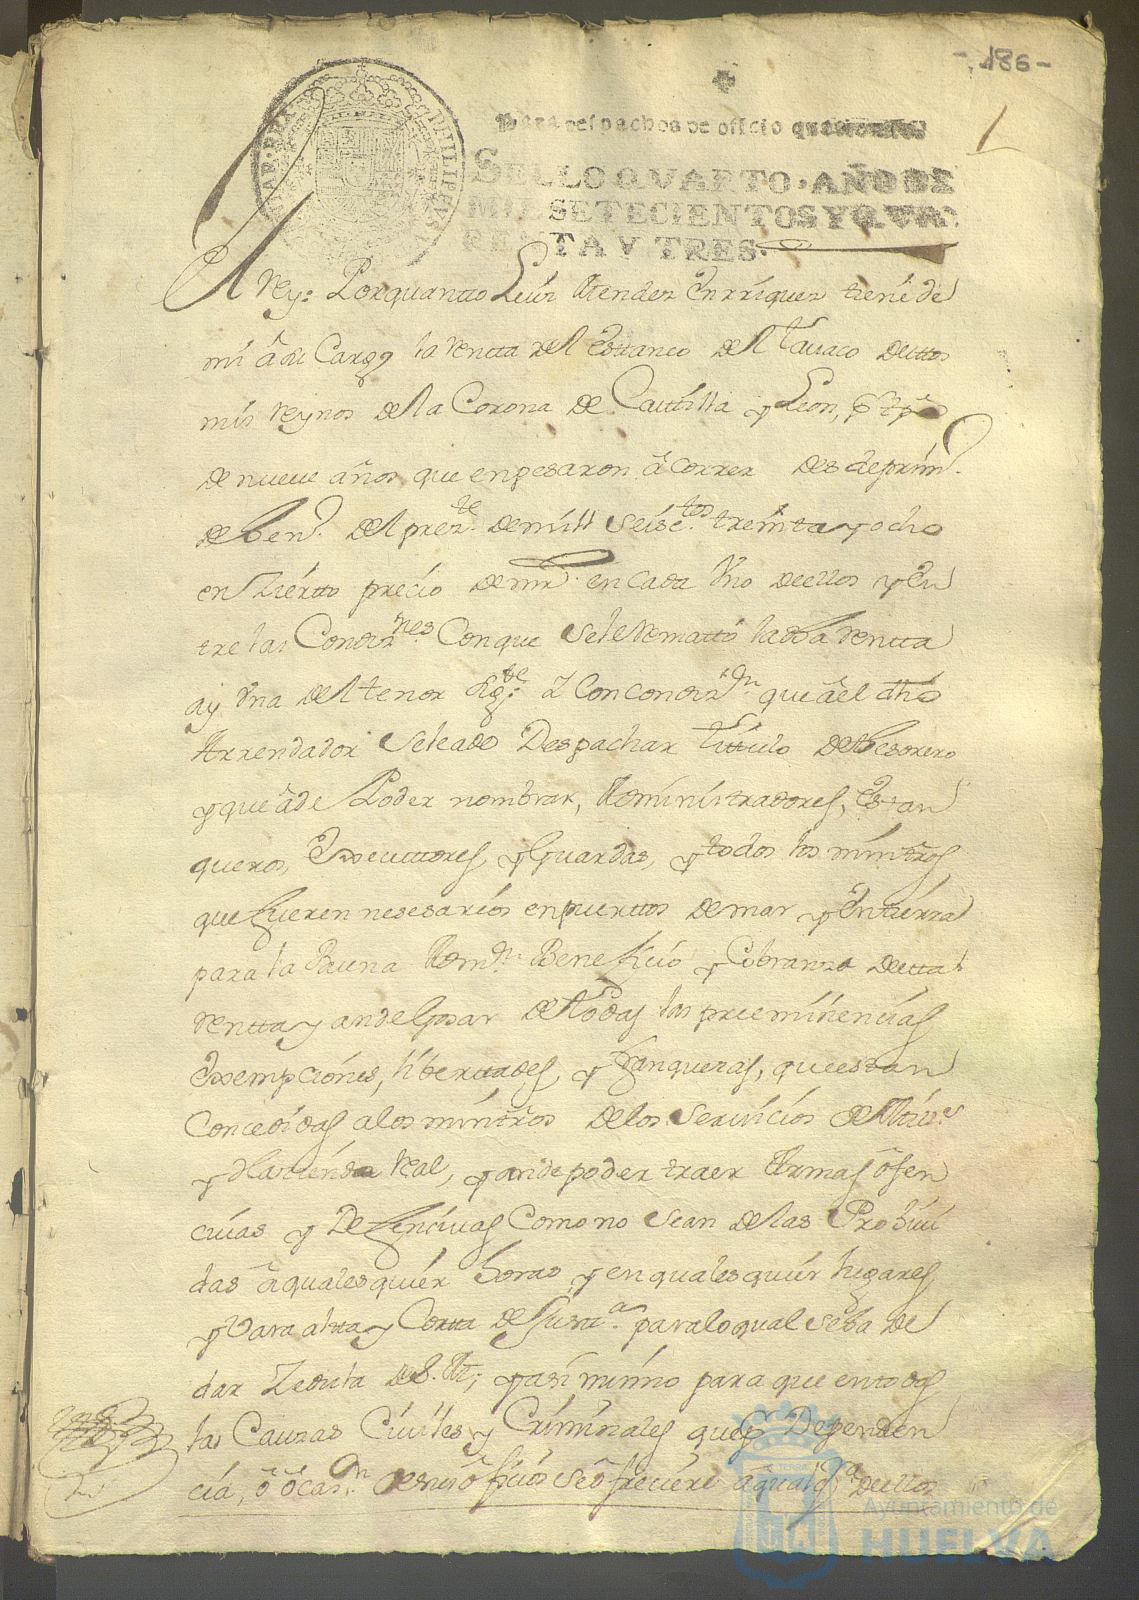 -186-
1
Para despachos de oficio quatro mrs
SELLO QVARTO, AÑO DE
MIL SETECIENTOS Y QVA-
RENTA Y TRES.
PHILIPVS
El Rey: Porquantto Luis Mendez Enrriquez tiene de
mi âdi Cargo la rentta del esttanco del tavaco desttos
mis reynos de la Corona de Casttilla y Leon, por tpo
de nueve años que enpesaron â correr desde prim.o
de hen.o del prez.te de mill seisc.tos treinta y ocho
en Ziertto precio de mrs. en cada Vno de ellos y En
tre las Condiz.nes Conque sele rematto la dha rentta
ay Vna del tenor sig.te Y Con condiz.on que âel dho
Arrendador sele a de Despachar tittulo de thesorero
y que âde Poder nombrar, Administradores, Estan
queros, Executtores, y Guardas, y todos los ministros
que fueren nesesarios en puerttos de mar y En tierra
para la Buena Adm.on Beneficio y Cobranza de etta
rentta y an de Gosar de todas las preeminencias
Exempciones, liberttades, y franquezas, que estan
Concedidas a los ministros de los servicios de Mill.es
y Hacienda real, y ande poder traer Armas ôfen
civas y Defencivas Como no sean de las Prohivi
das â qualesquier horas y en qualesquier lugares
y Vara altta y Cortta de Justt.a para lo qual se ha de
dar Zedula de S. M; y asi mismo para que en todas
las Cauzas Civiles y Criminales que Dependen
cia, ô ôcas.on de su ôficio se ôfrecieri â qualq.a de ellos
Ayuntamiento de
HUELVA